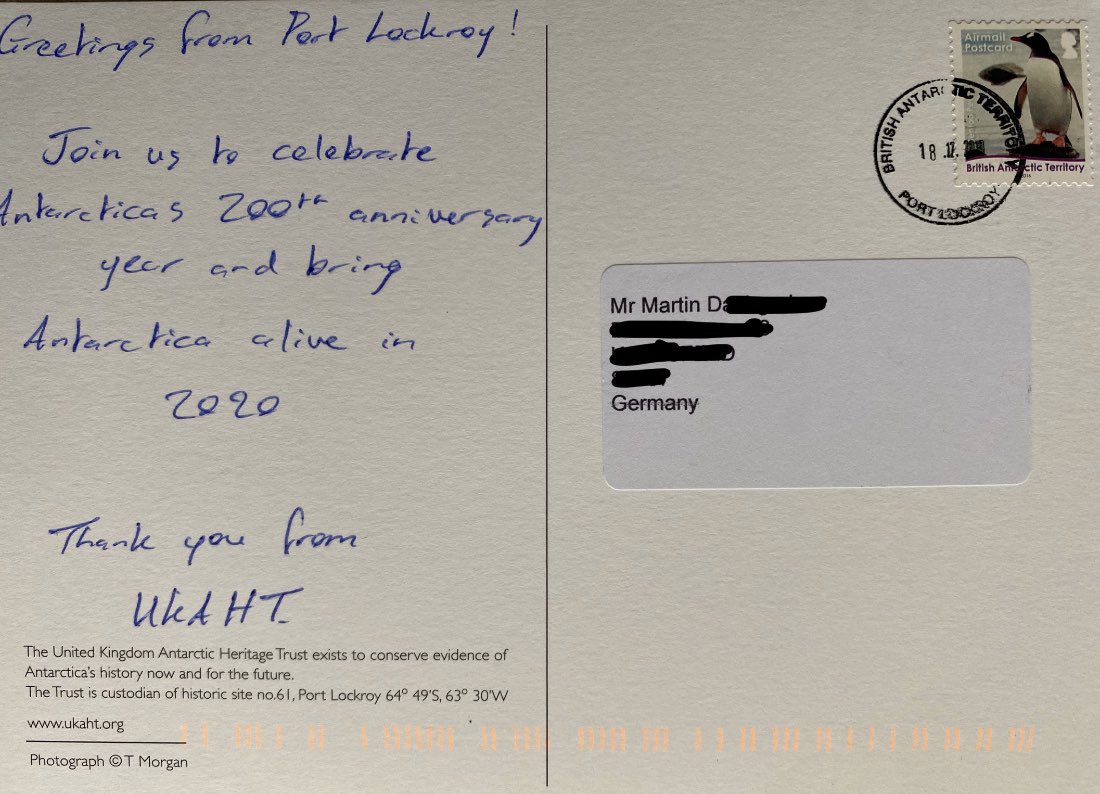 Greetings from Port Lockroy!
Join us to celebrate
Antarcticas 200th anniversary
year and bring
Antarctica alive in
2020
Thank you from
UKAHT.
The United Kingdom Antarctic Heritage Trust exists to conserve evidence of
Antarctica's history now and for the future.
The Trust is custodian of historic site no.61, Port Lockroy 64º 49'S, 63º 30'W
www.ukaht.org
Photograph © T Morgan
Airmail
Postcard
British Antarctic Territory
BRITISH ANTARCTIC TERRITORY
18 .12.
PORT LOCKROY
Mr Martin Da
Germany